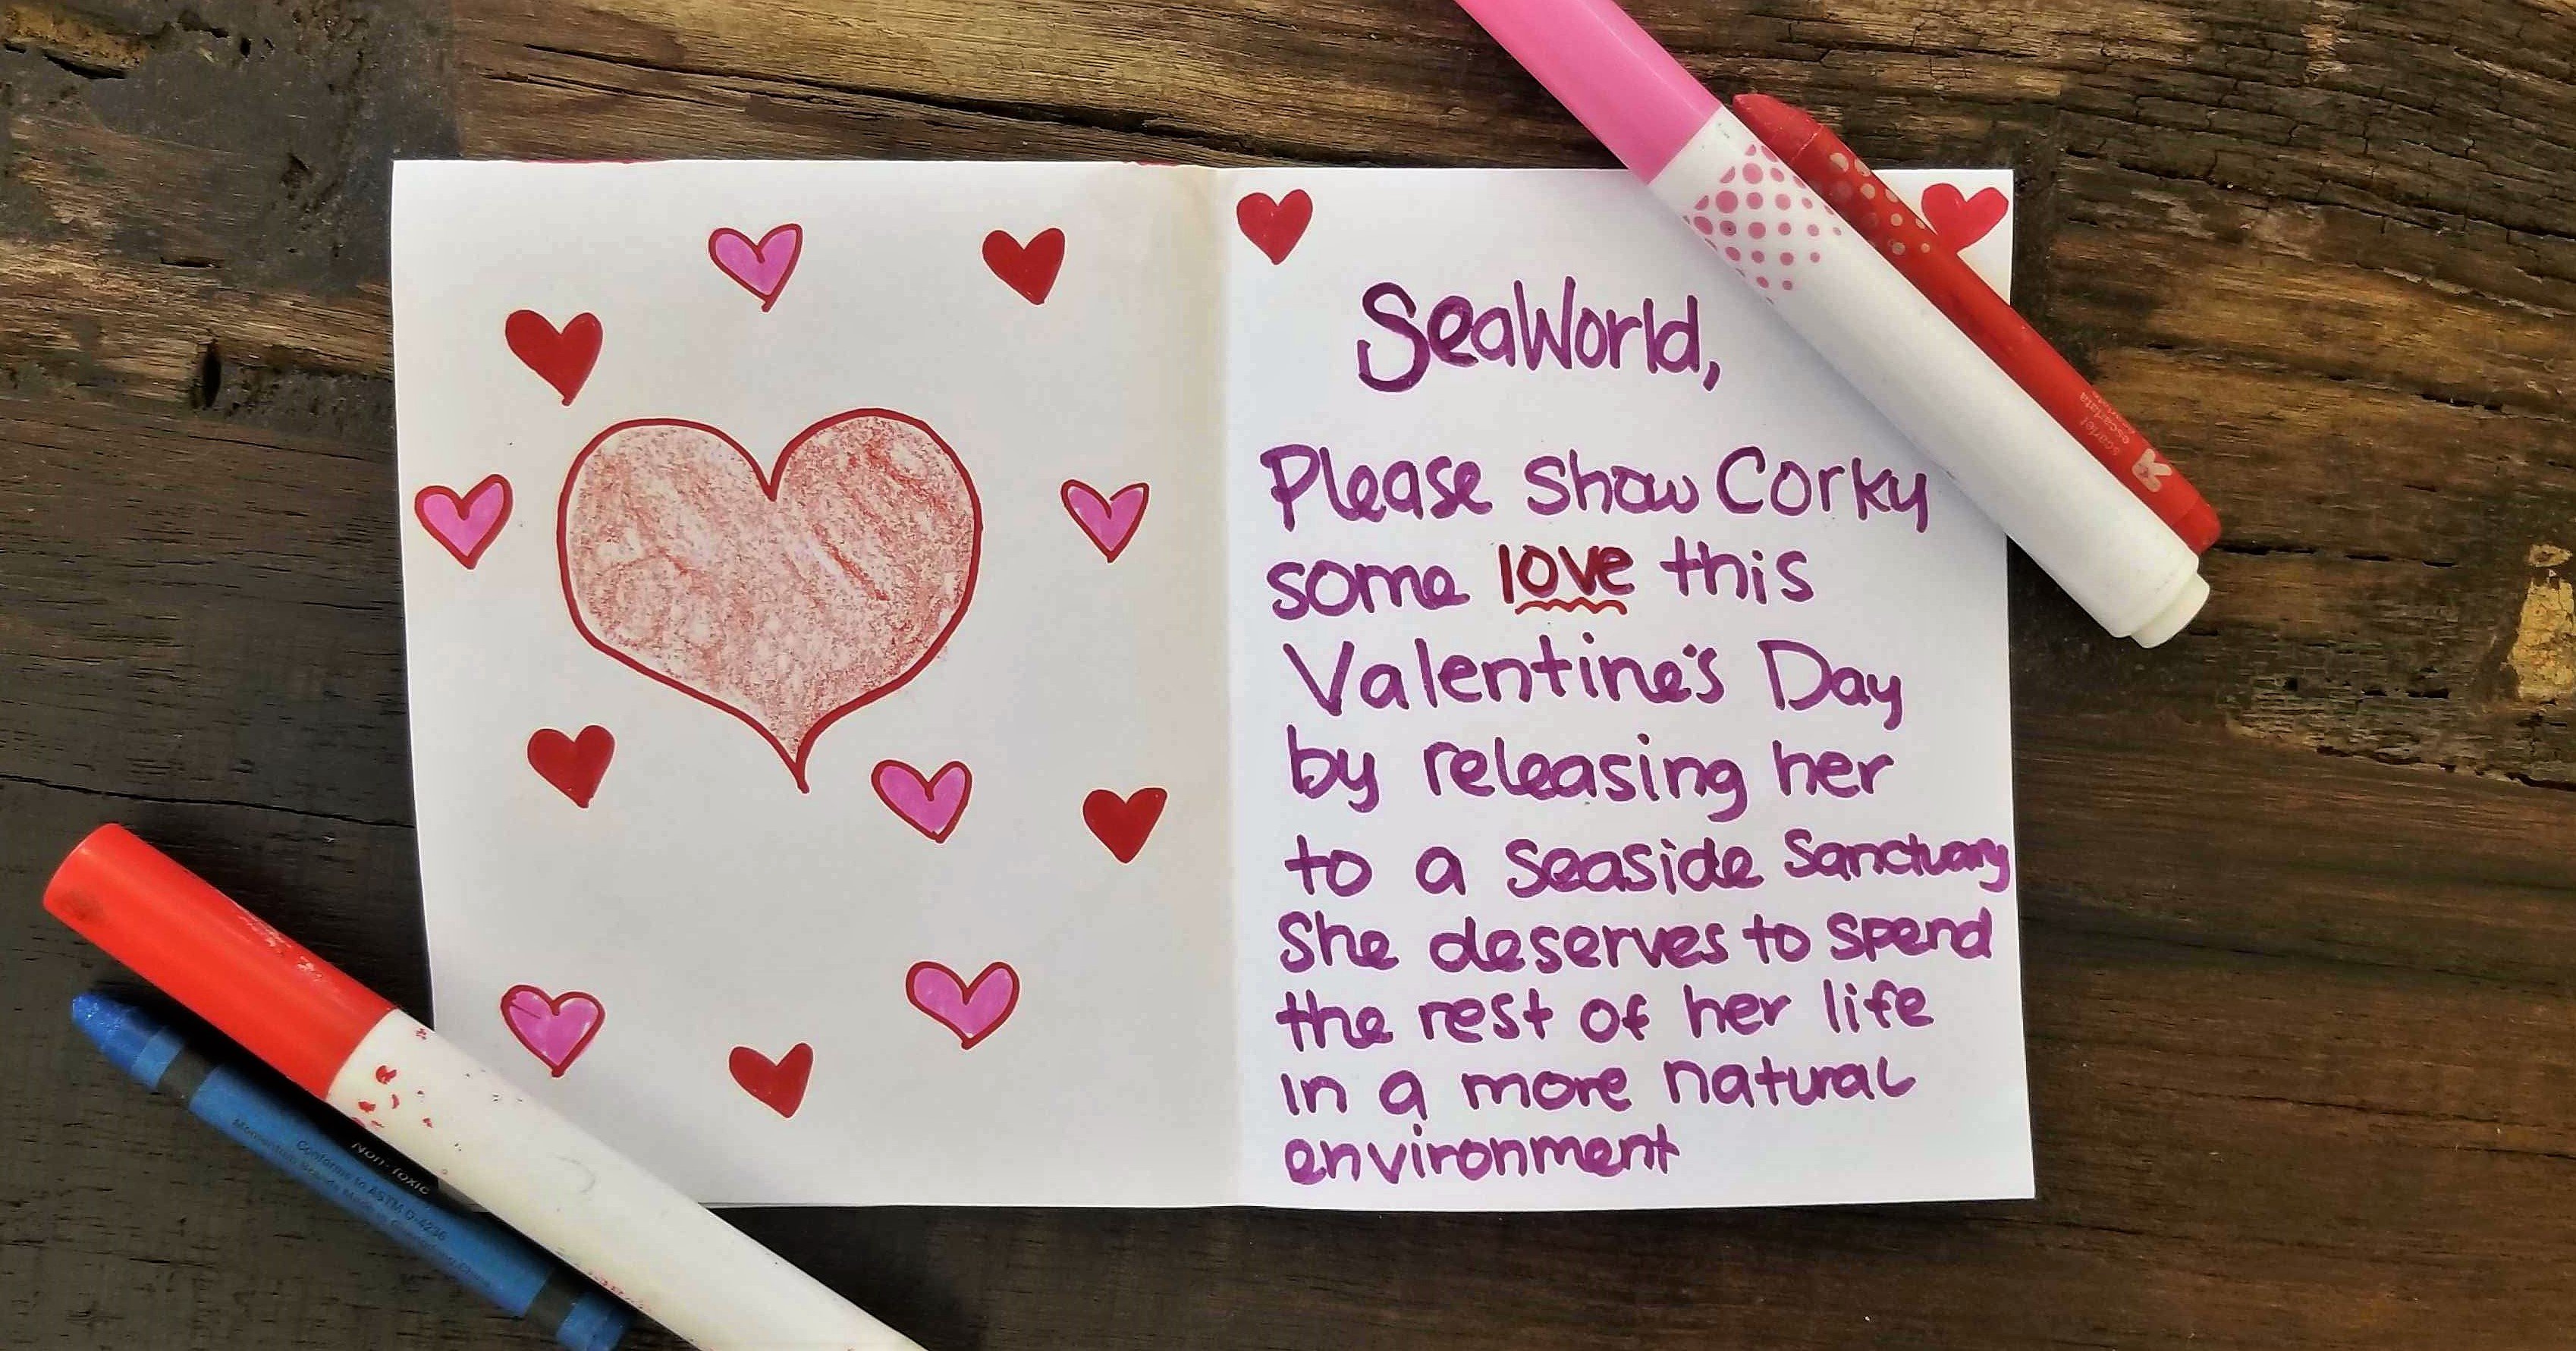 SeaWorld,
Please show Corky
some love this
Valentine's Day
by releasing her
to a seaside Sanctuary
She deserves to spend
the rest of her life
in a more natural
environment
scarlet
escarlata
Non-Toxic
Conforms to ASTM D-4236